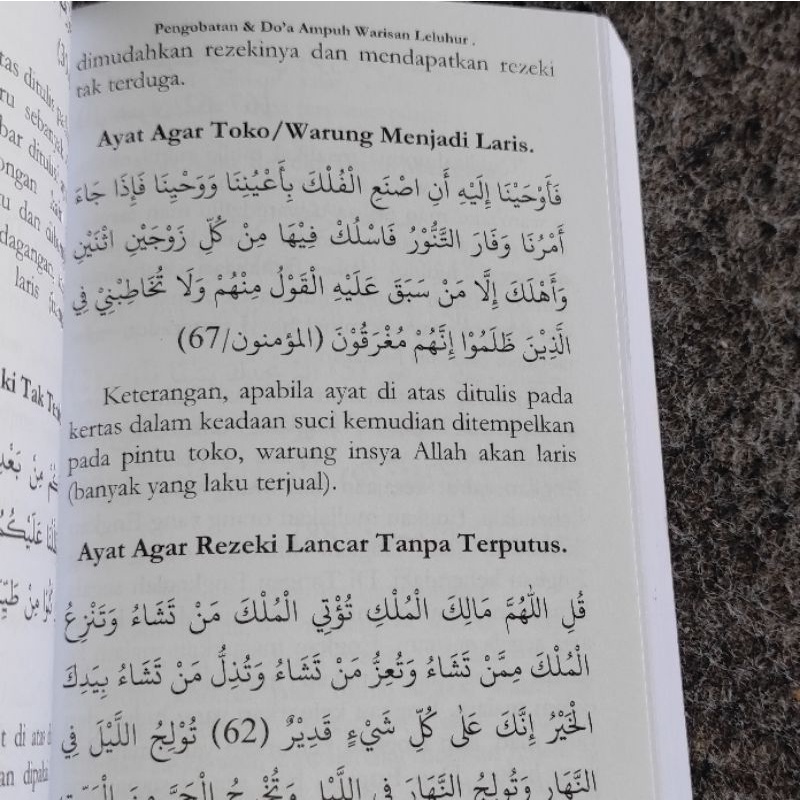 Pengobatan & Do'a Ampuh Warisan Leluhur .
dimudahkan rezekinya dan mendapatkan rezeki
tak terduga.
Ayat Agar Toko/Warung Menjadi Laris.
فَأَوْحَيْنَا إِلَيْهِ أَنِ اصْنَعِ الْفُلْكَ بِأَعْيُنِنَا وَوَحْيِنَا فَإِذَا جَاءَ
أَمْرُنَا وَفَارَ التَّنُّوْرُ فَاسْلُكْ فِيْهَا مِنْ كُلِّ زَوْجَيْنِ اثْنَيْنِ
وَأَهْلَكَ إِلَّا مَنْ سَبَقَ عَلَيْهِ الْقَوْلُ مِنْهُمْ وَلَا تُخَاطِبْنِيْ فِي
الَّذِيْنَ ظَلَمُوْا إِنَّهُمْ مُغْرَقُوْنَ (المؤمنون/67)
Keterangan, apabila ayat di atas ditulis pada
kertas dalam keadaan suci kemudian ditempelkan
pada pintu toko, warung insya Allah akan laris
(banyak yang laku terjual).
Ayat Agar Rezeki Lancar Tanpa Terputus.
قُلِ اللّٰهُمَّ مَالِكَ الْمُلْكِ تُؤْتِي الْمُلْكَ مَنْ تَشَاءُ وَتَنْزِعُ
الْمُلْكَ مِمَّنْ تَشَاءُ وَتُعِزُّ مَنْ تَشَاءُ وَتُذِلُّ مَنْ تَشَاءُ بِيَدِكَ
الْخَيْرُ إِنَّكَ عَلٰى كُلِّ شَيْءٍ قَدِيْرٌ (62) تُوْلِجُ اللَّيْلَ فِي
النَّهَارِ وَتُولِجُ النَّهَارَ فِي اللَّيْلِ وَتُخْرِجُ الْحَيَّ مِنَ